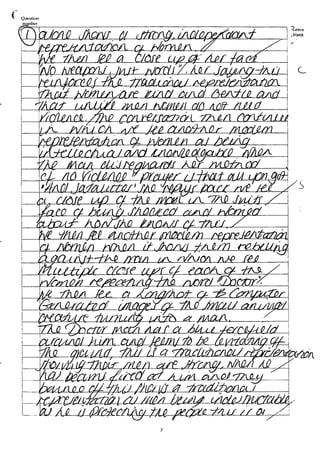 Question
number
Leave
blank
1 alone shows a strong, independant
representation of women.
We then see a close up of her face
"No weapons, just words", her saying this
reinforces the traditional representation
that women are kind and gentle and
that unlike men women do not need
violence. The conversation then continues
C
in which we see another modern
representation of women as being
intellectual and knowledgable when
the man disregards her method
of no violence "prayer is that all you got"
"And Satallites" she replys back we see
S
a close up of the man in the suits
face of being shocked and worried
about how she knows of this.
We then see another modern representation
of women when it shows them rebelling
against the man in which we see
multiple close ups of each of the
women repeating the word "Doctor".
We then see a longshot of Computer
Generated images of the small animal
creature turning into a man.
The Doctor man has a blue forcefield
around him and seems to be levitating off
the ground, this is a traditional representation
showing their men are strong. When he
has beams fired at him and they
bounce off this shows a traditional
representation as men being undestructable
as he is protecting the people this is a